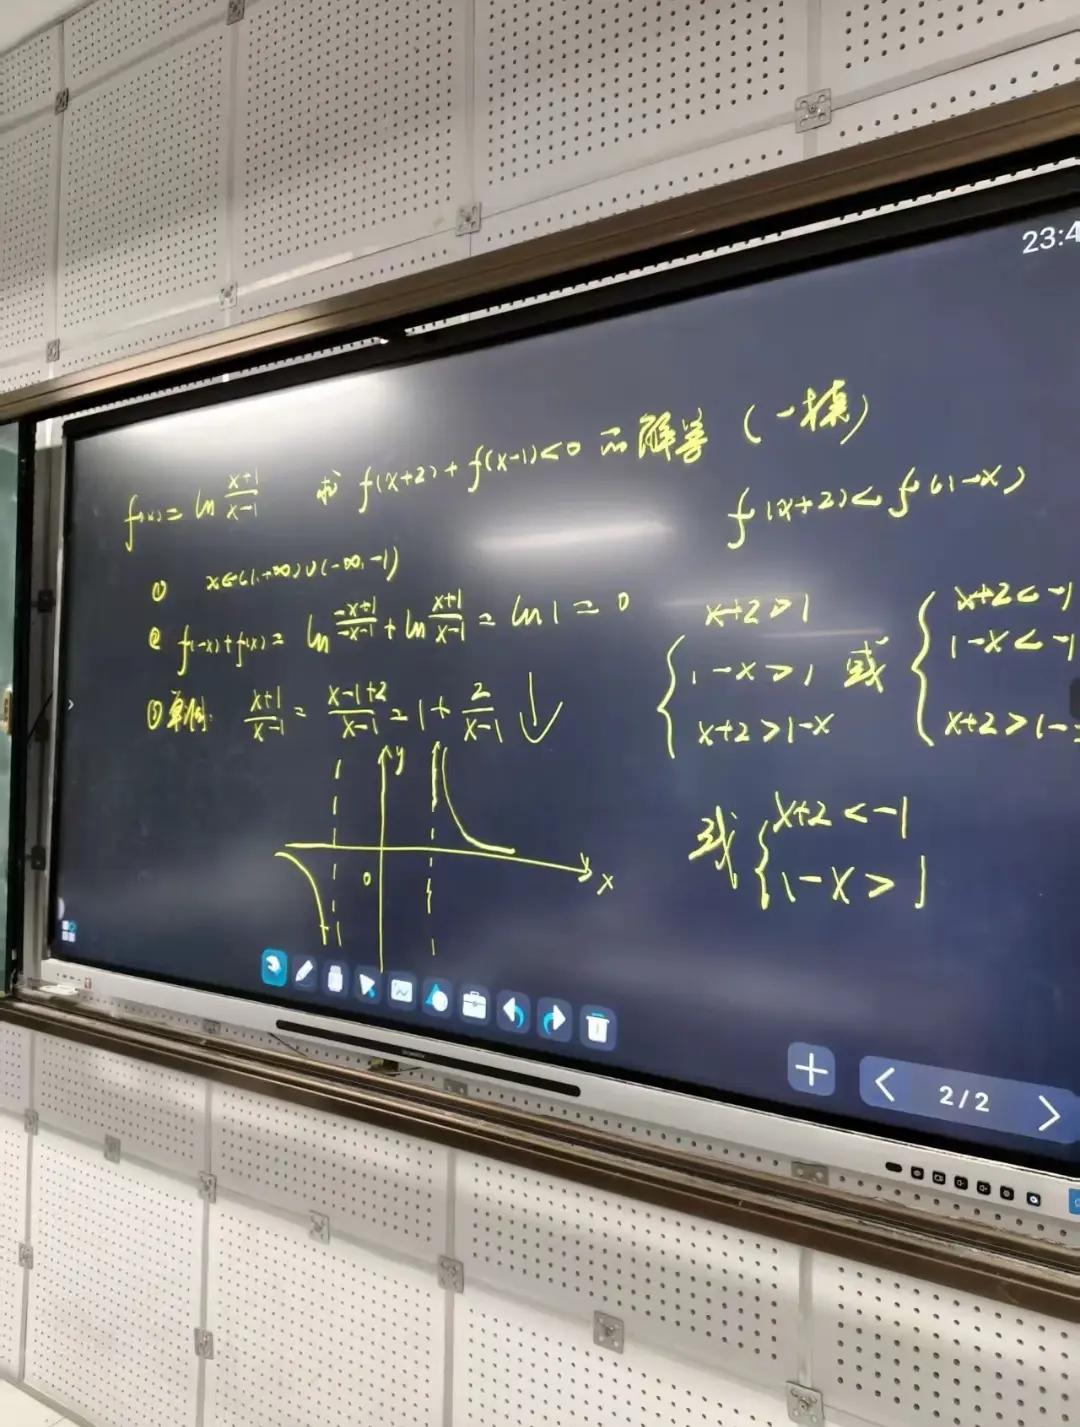 23:4
f(x)=ln (x+1)/(x-1) 求 f(x+2)+f(x-1)<0 的解集 (一模)
① x∈(1,+∞)∪(-∞,-1)
② f(-x)+f(x)= ln (-x+1)/(-x-1) + ln (x+1)/(x-1) = ln 1 = 0
③ 单调: (x+1)/(x-1) = (x-1+2)/(x-1) = 1+ 2/(x-1) ↓
y
0
x
f(x+2)<f(1-x)
{ x+2>1
1-x>1
x+2>1-x
或
{ x+2<-1
1-x<-1
x+2>1-
或 { x+2<-1
1-x>1
2/2